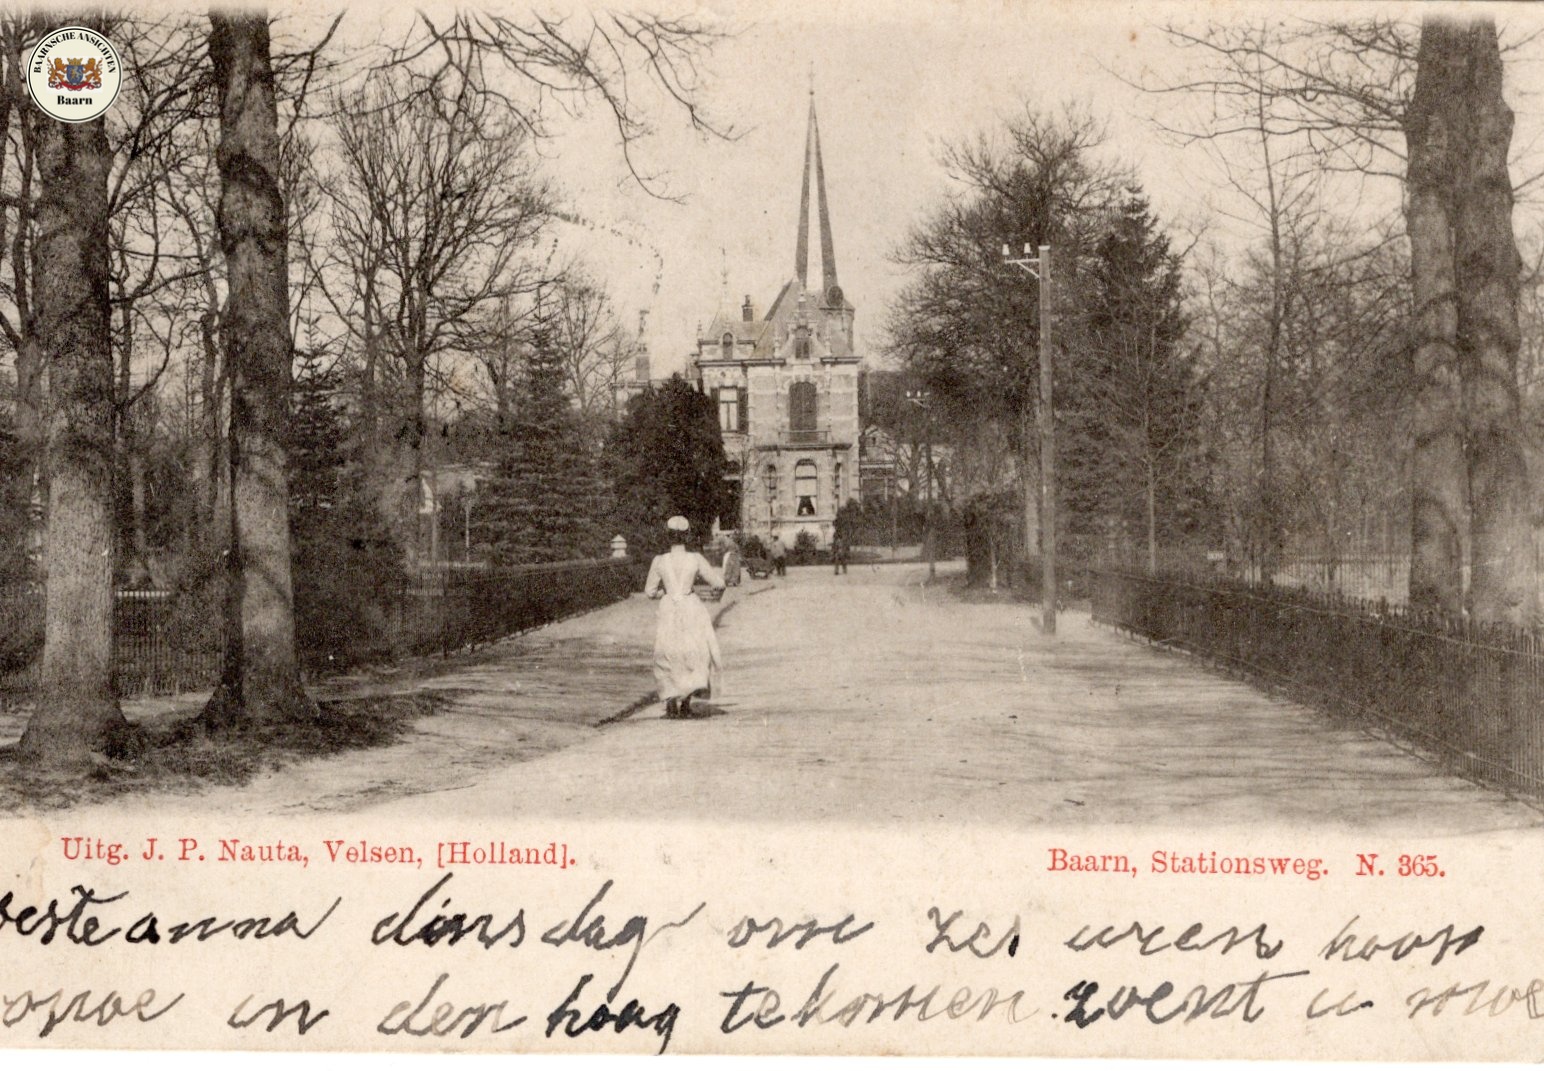 BAARNSCHE ANSICHTEN
Baarn
Uitg. J. P. Nauta, Velsen, [Holland].
Baarn, Stationsweg. N. 365.
beste anna dinsdag om zes uren hoop
in den haag te komen zoent u